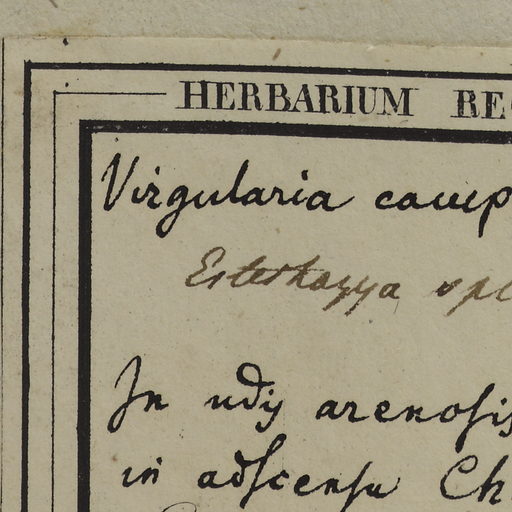 HERBARIUM REG
Virgularia camp
Esterhazya spl
In udis arenosis
in adscensu Ch